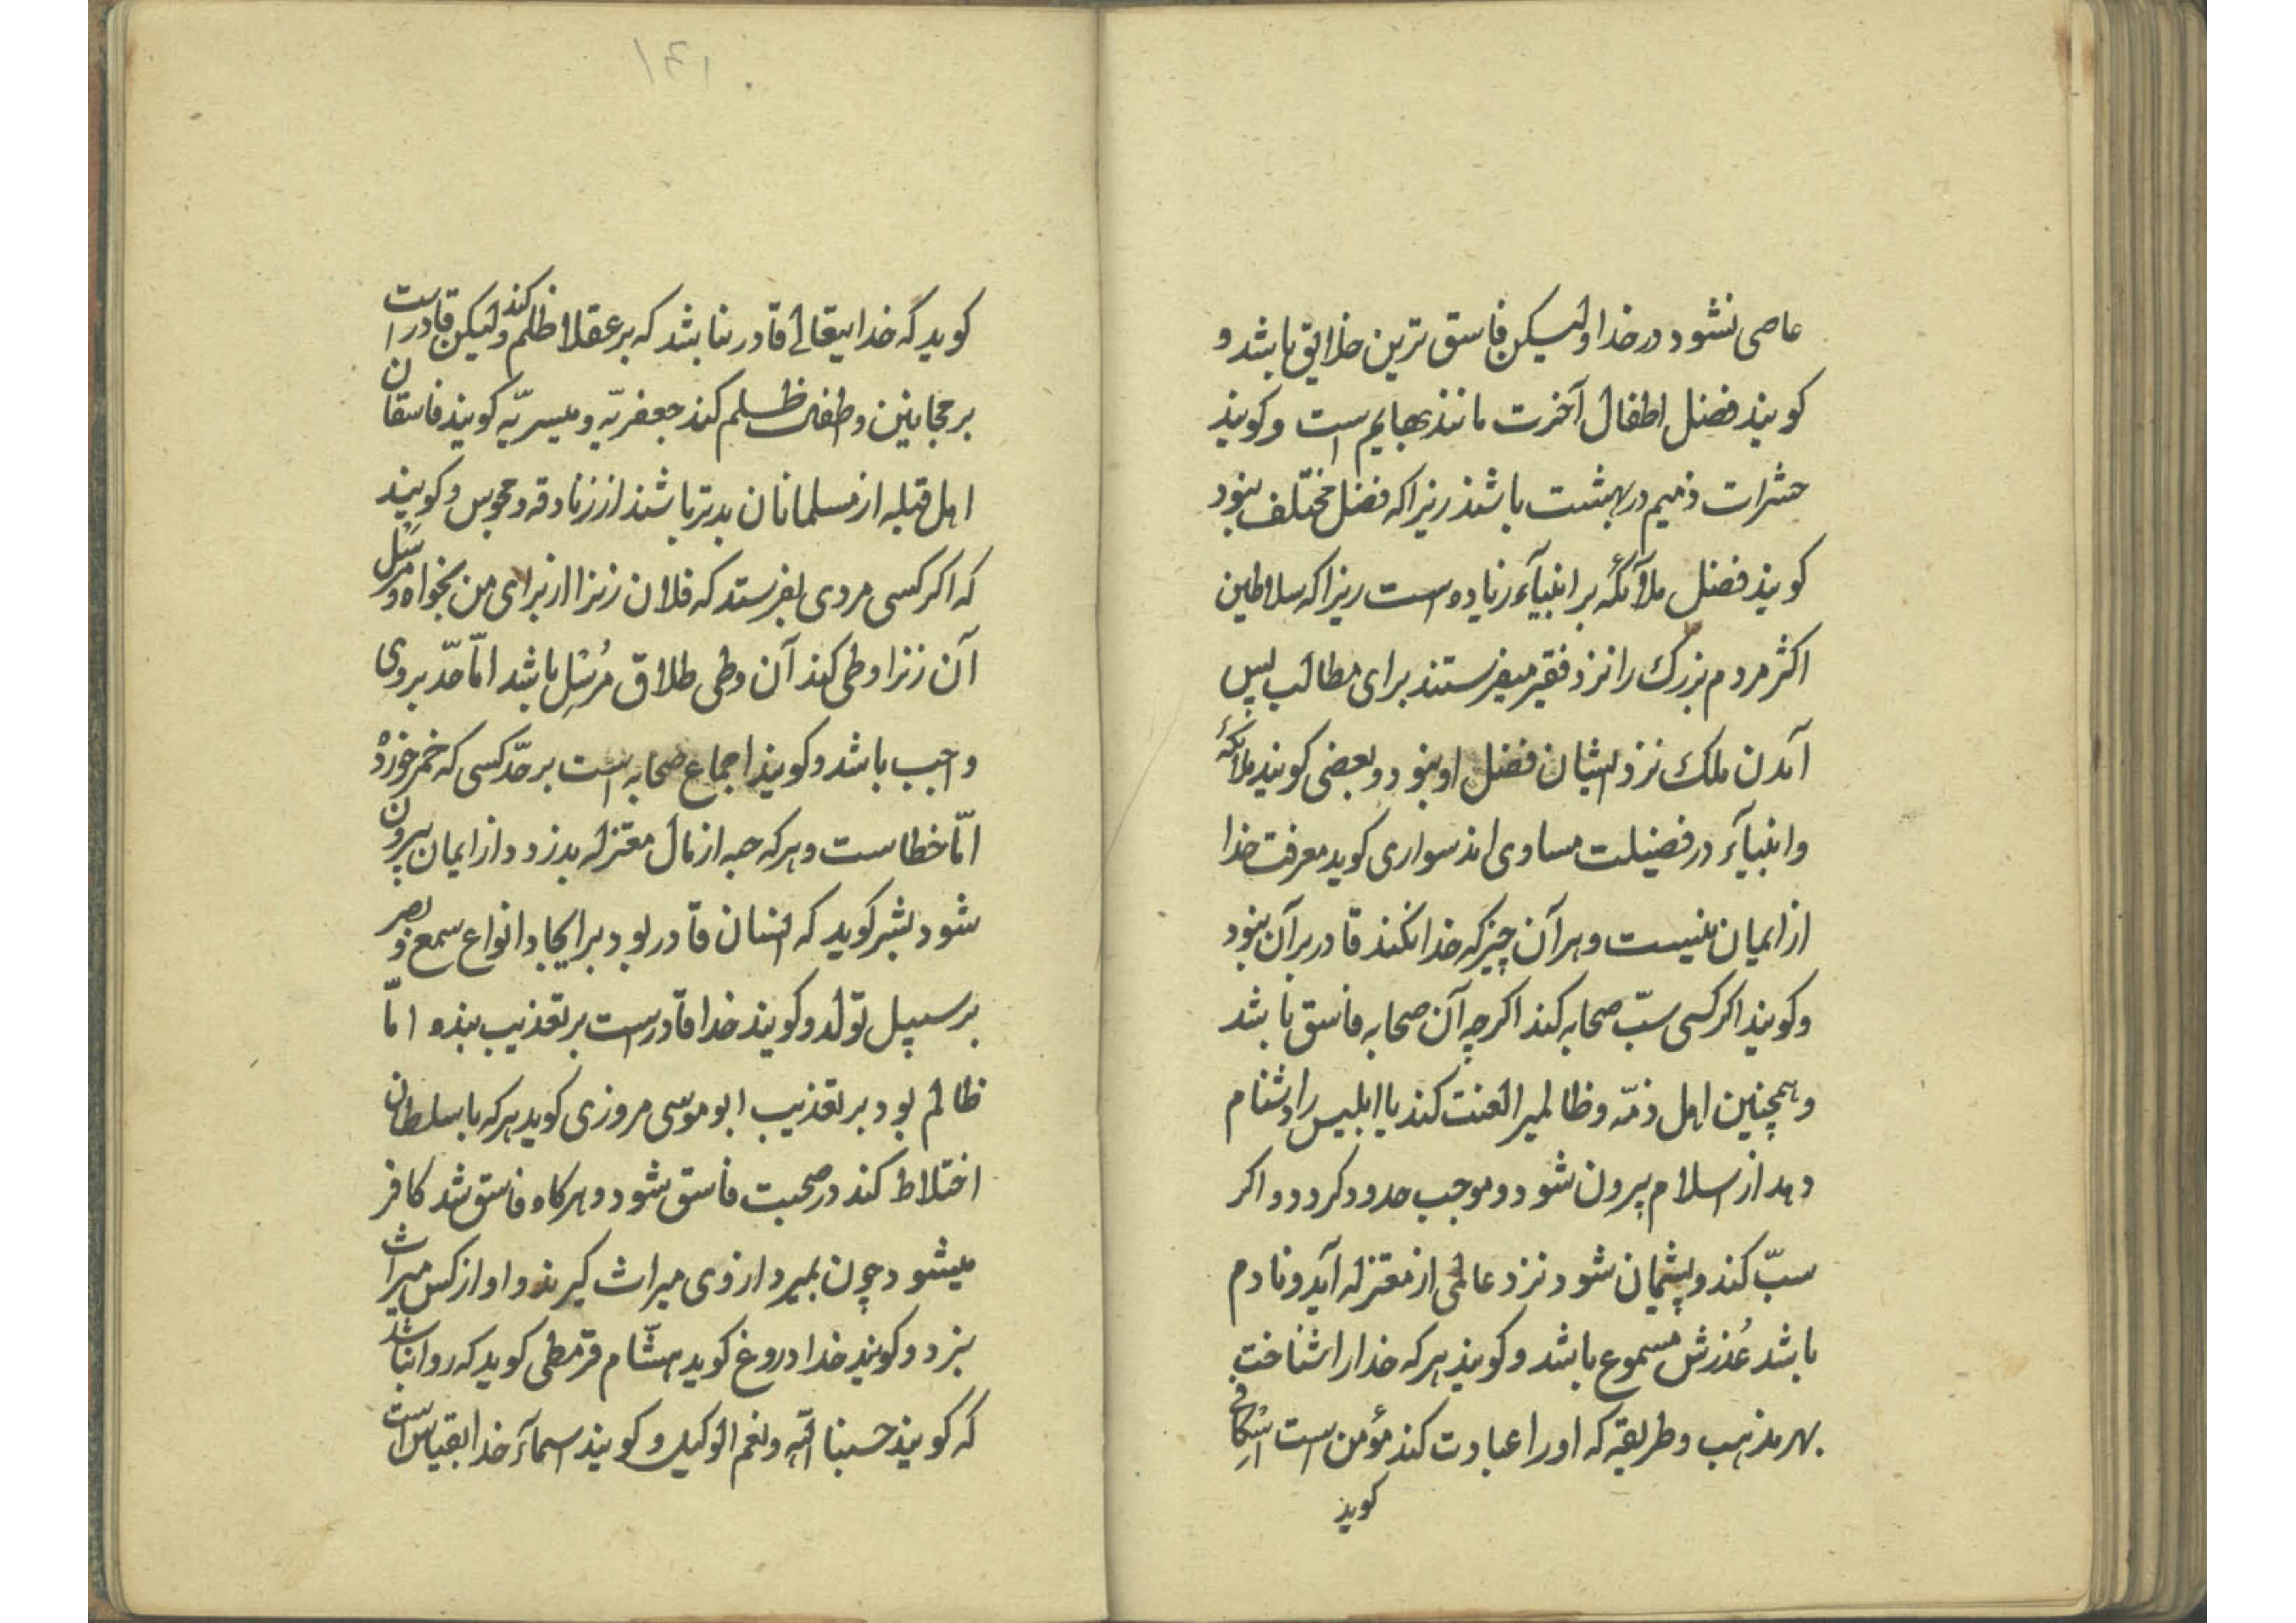 عاصی نشود در خدا ولیکن فاسق ترین خلایق باشد و
کویند فضل اطفال آخرت مانند بهایم است و کویند
حشرات ذمیم در بهشت باشند زیرا که فضل مختلف نبود
کویند فضل ملآئکه بر انبیآء زیاده است زیرا که سلاطین
اکثر مردم بزرک را نزد فقیر میفرستند برای مطالب پس
آمدن ملک نزد ایشان فضل او نبود و بعضی کویند ملائکه
و انبیآء در فضیلت مساوی اند سواری کوید معرفت خدا
از ایمان نیست و هر آن چیز که خدا نکند قادر بر آن نبود
و کویند اکر کسی سبّ صحابه کند اکر چه آن صحابه فاسق باشد
و همچنین اهل ذمّه و ظالمیرا لعنت کند یا ابلیس را دشنام
دهد از اسلام بیرون شود و موجب حدود کردد و اکر
سبّ کند و پشیمان شود نزد عالمی از معتزله آید و نادم
باشد عُذرش مسموع باشد و کویند هر که خدا را شناخت
بهر مذهب و طریقه که او را عبادت کند مؤمن است اسکافی
کوید
۱۴۱
کوید که خدایتعالی قادر نباشد که بر عقلا ظلم کند ولیکن قادر است
بر مجانین و طفل ظلم کند جعفریّه و میسریّه کویند فاسقان
اهل قبله از مسلمانان بدتر باشند از زنادقه و مجوس و کویند
که اکر کسی مردی بفرستد که فلان زنرا از برای من بخواه و مرسَل
آن زنرا وطی کند آن وطی طلاق مُرسِل باشد امّا حدّ بر وی
واجب باشد و کویند اجماع صحابه است بر حدّ کسی که خمر خورد
امّا خطاست و هر که حبه از مال معتزله بدزدد از ایمان بیرون
شود بشر کوید که انسان قادر بود بر ایجاد انواع سمع و بصر
بر سبیل تولد و کویند خدا قادر است بر تعذیب بنده امّا
ظالم بود بر تعذیب ابو موسی مروزی کوید هر که با سلطان
اختلاط کند در صحبت فاسق شود و هرکاه فاسق شد کافر
میشود چون بمیرد از وی میراث کیرند و او از کس میراث
نبرد و کویند خدا دروغ کوید هشّام قرمطی کوید که روا نباشد
که کویند حسبنا الله و نعم الوکیل و کویند اسمآء خدا بقیاس است